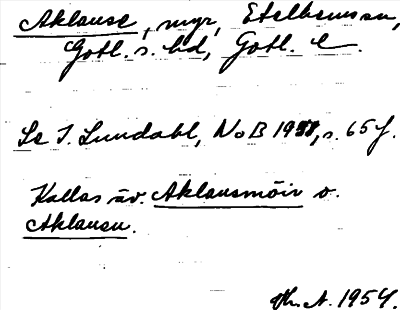 Aklause, myr, Etelhems sn,
Gotl. s. hd, Gotl. l.
Se I. Lundahl, NoB 1938, s. 65 f.
Kallas äv. Aklausmöir o.
Aklausu.
Th. A. 1954.